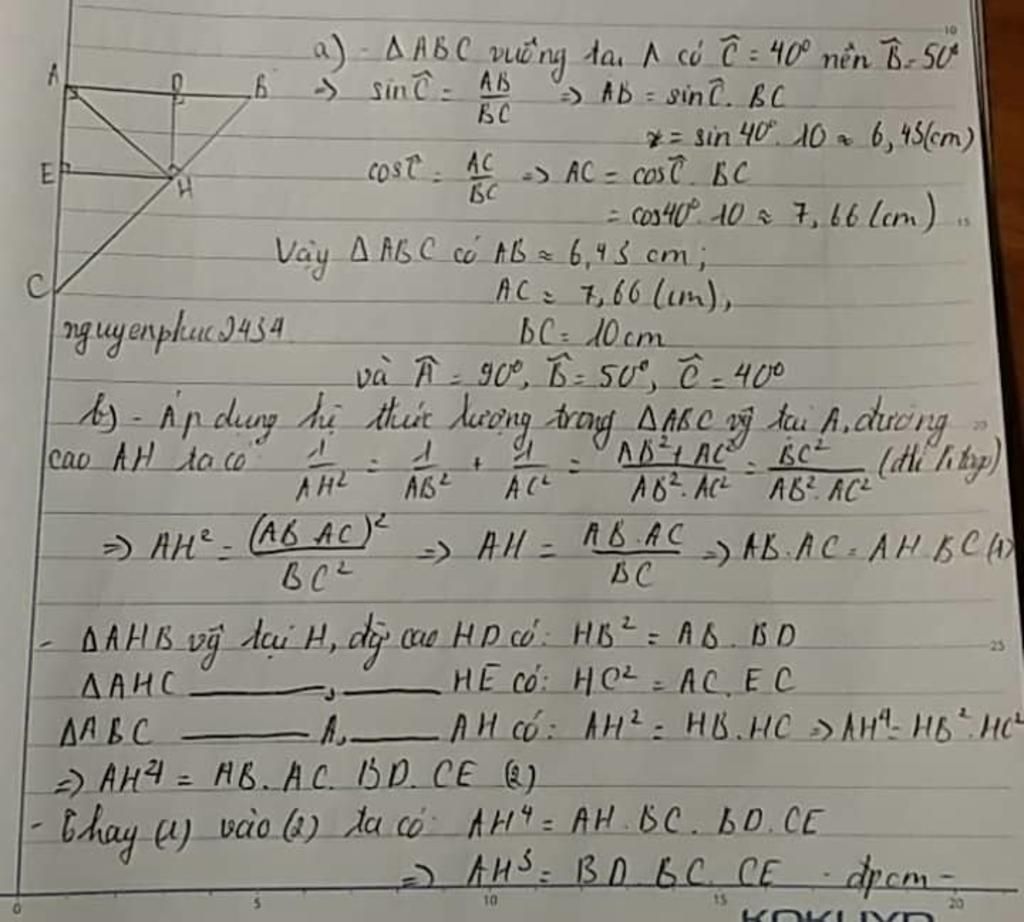 a) - ΔABC vuông tại A có Ĉ = 40° nên B̂ = 50°
A D B
=> sinĈ = AB/BC => AB = sinĈ. BC
= sin 40°. 10 ≈ 6,43(cm)
E H
cosĈ = AC/BC => AC = cosĈ. BC
= cos40°. 10 ≈ 7,66 (cm)
Vậy ΔABC có AB ≈ 6,43 cm;
C
AC ≈ 7,66 (cm),
nguyenphuc2434
BC = 10cm
và Â = 90°, B̂ = 50°, Ĉ = 40°
b) - Áp dụng hệ thức lượng trong ΔABC vg̃ tại A, đường
cao AH ta có 1/AH² = 1/AB² + 1/AC² = AB²+AC²/AB².AC² = BC²/AB².AC²
=> AH² = (AB.AC)²/BC² => AH = AB.AC/BC => AB.AC = AH.BC (1)
- ΔAHB vg̃ tại H, đg̃ cao HD có: HB² = AB.BD
ΔAHC ———, ——— HE có: HC² = AC.EC
ΔABC ——— A, ——— AH có: AH² = HB.HC => AH⁴ = HB².HC²
=> AH⁴ = AB.AC.BD.CE (2)
- Thay (1) vào (2) ta có: AH⁴ = AH.BC.BD.CE
=> AH³ = BD.BC.CE - đpcm -
0 5 10 15 20
KOKUYO